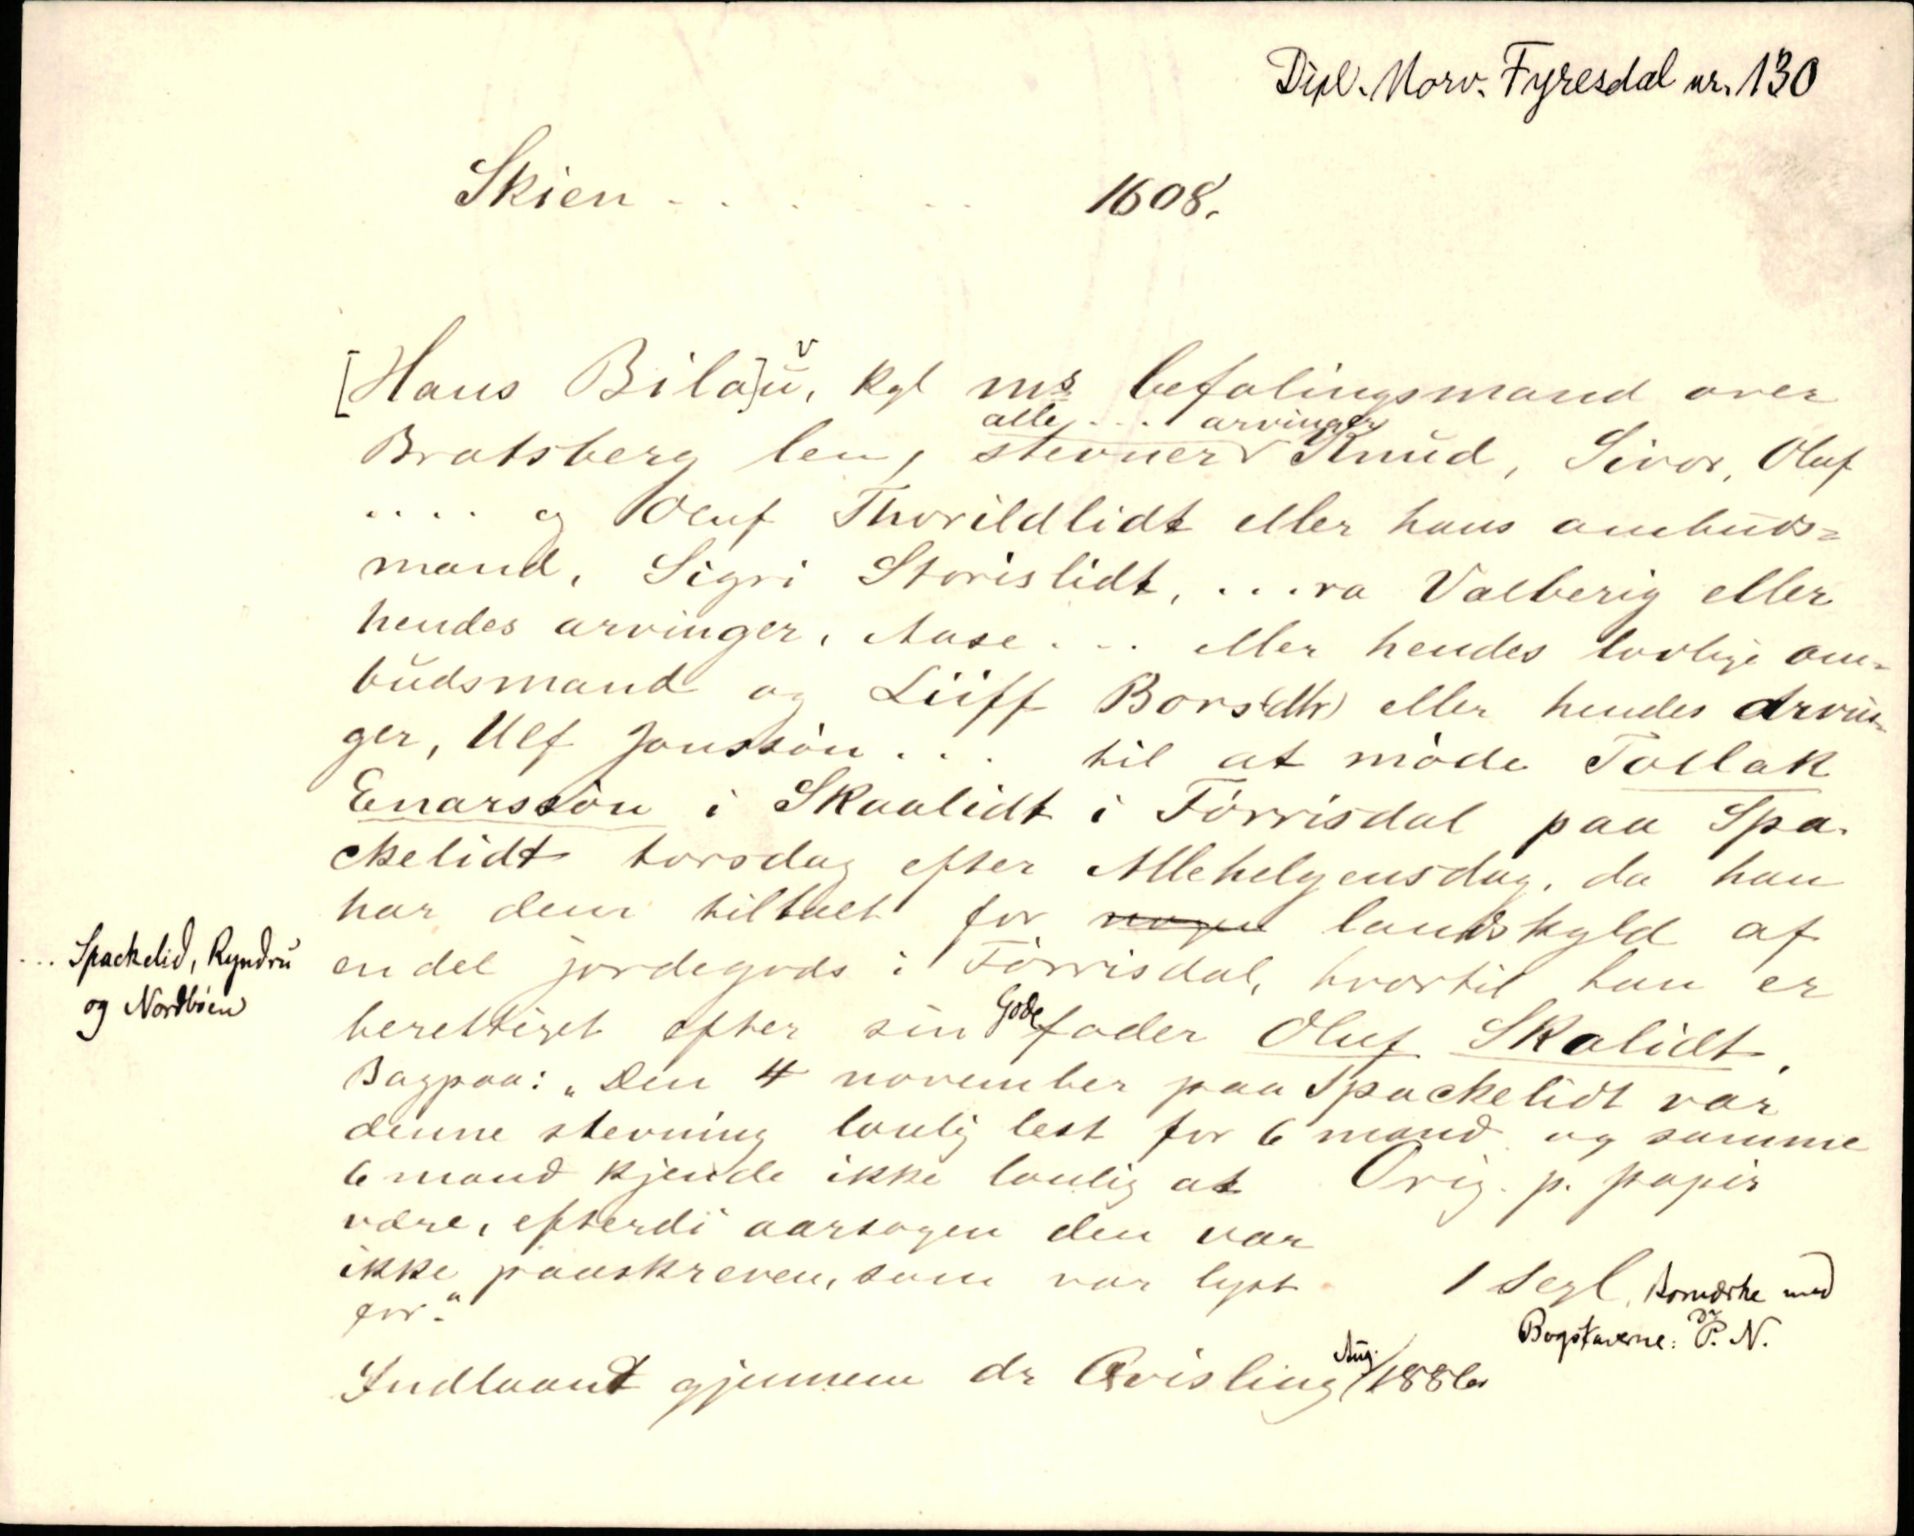 Dipl. Norv. Fyresdal nr. 130
Skien . . . . . . 1608.
[Hans Bila]u, kgl ms befalingsmand over
Bratsberg len, stevner alle . . . arvinger Knud, Sivor, Oluf
. . . . og Oluf Thorildlidt eller hans ambuds=
mand, Sigri Storislidt, . . . ra Valberig eller
hendes arvinger, Aase . . . eller hendes lovlige om-
budsmand og Liiff Bors(dtr) eller hendes arvin-
ger, Ulf Jonssön . . . til at möde Tollak
Enarssön i Skaalidt i Förrisdal paa Spa-
ckelidt torsdag efter Allehelgensdag, da han
har dem tiltalt for nogen landskyld af
... Spackelid, Ryndru
og Nordböen
en del jordegods i Förrisdal, hvortil han er
berettiget efter sin Gode fader Oluf Skalidt.
Bagpaa: „Den 4 november paa Spackelidt var
denne stevning loulig lest for 6 mand og samme
6 mand kjende ikke loulig at
være, efterdi aarsagen den var
ikke paaskreven, som var lyst
for."
Orig. p. papir
1 segl, Bomærke med
Bogstaverne: P. N.
Indlaant gjennem dr Qvisling Aug. 1886